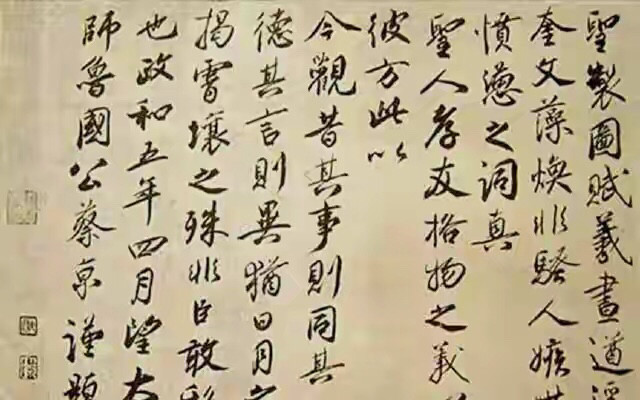 聖製圖賦羲畫遒
奎文藻煥非騷人嫉
憤懣之詞真
聖人孝友格物之義
彼方此以
今觀昔其事則同其
德其言則異猶日月之
揭霄壤之殊非臣敢
也政和五年四月望太
師魯國公蔡京謹題